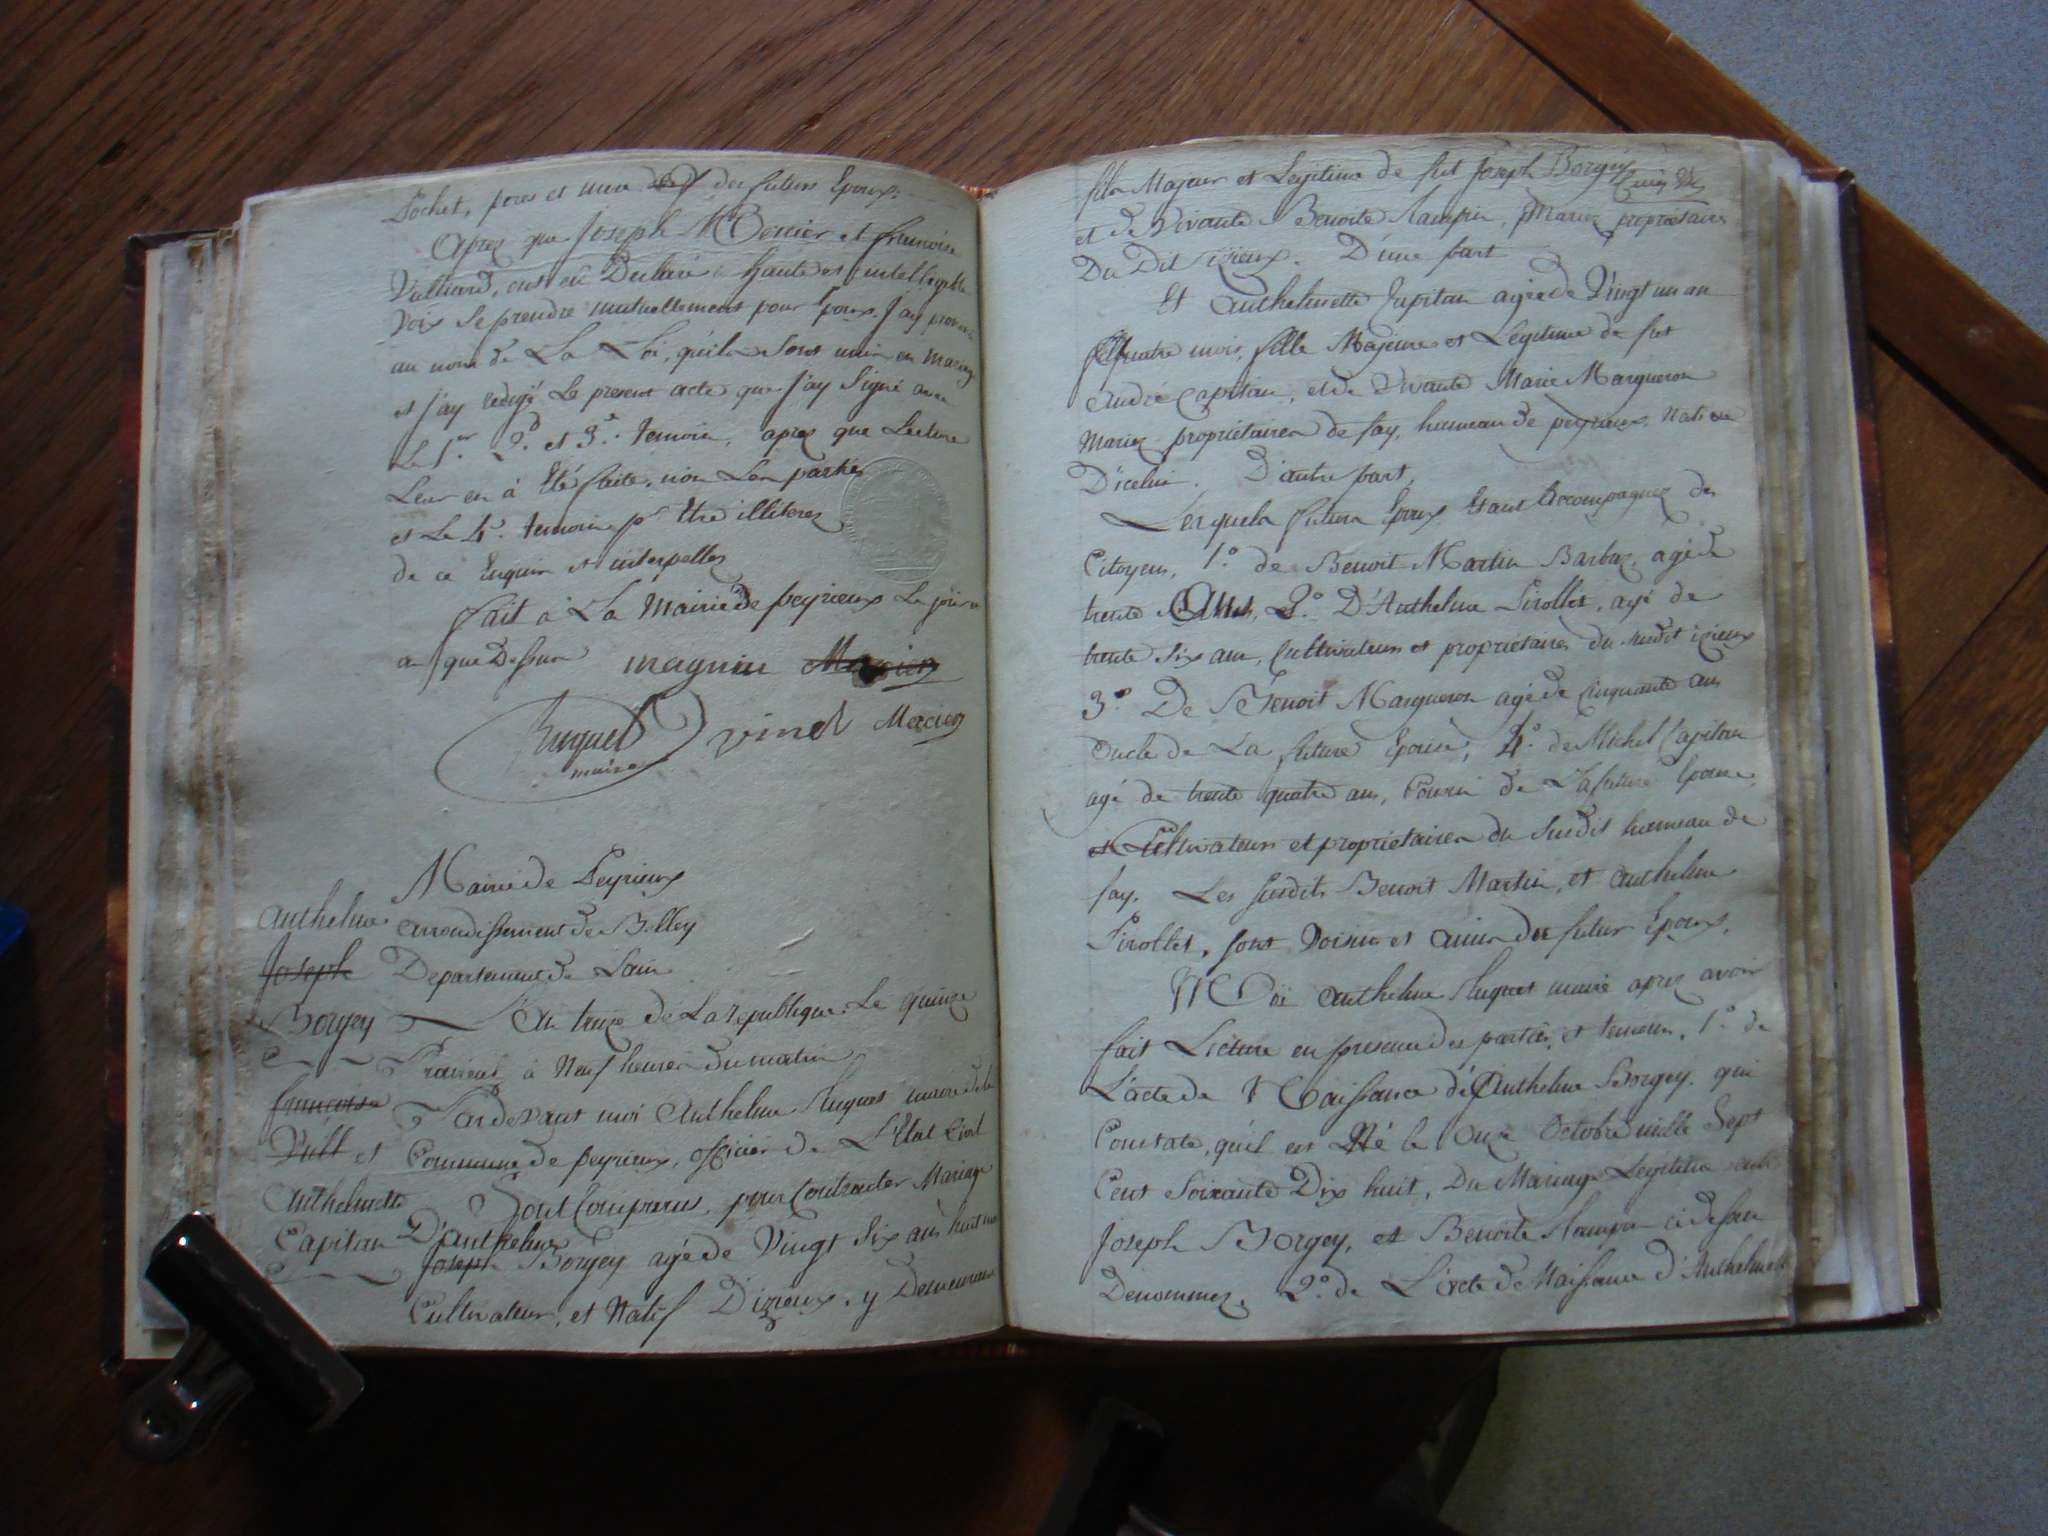 pochet, peres et mere des futurs Epoux.
Apres que Joseph Mercier et francoise
Vulliard, ont eu Declaré à haute et intelligible
Voix Se prendre mutuellement pour Epoux. J'ay prononcé
au nom de La Loi, quils Sont unis en mariage
et J'ay redigé Le present acte que J'ay Signé avec
Le 1er. 2d. et 3e. temoin, apres que Lecture
Leur en à Eté faite, non Les parties
et Le 4e. temoin pr Etre illiteres
de ce Enquis et interpellez
fait à La Mairie de peyrieux Le jour et
an que Dessus magnin Mercier
huguet vinel Mercier
maire
Mairie de Peyrieux
arrondissement de Belley
Departement de Lain
Anthelme
Joseph
Borgey
francoise
Vull et
Anthelmette
Capitan
An treize de La republique Le quinze
Prairial à Neuf heures du matin
Pardevant moi Anthelme huguet maire de la
Commune de peyrieux, officier de L'Etat Civil
Sont Comparus, pour Contracter Mariage
D'Anthelme
Joseph Borgey agé de Vingt Six ans huit mois
Cultivateur, et Natif D'izieux, y Demeurant
fils Majeur et Legitime de fut Joseph Borgey
et de Vivante Benoite, Mariez propriétaires
Du Dit izieux. D'une part
Et Anthelmette Capitan agée de Vingt un an
quatre mois, fille Majeure et Legitime de fut
André Capitan, et de Vivante Marie Margueron
Mariez propriétaires de fay, hameau de peyrieux, Native
D'icelui. D'autre part,
Lesquels futurs Epoux Etant Accompagnez des
Citoyens, 1.° de Benoit Martin Barbaz, agé de
trente Ans, 2.° D'Anthelme Pirollet, agé de
trente Six ans, Cultivateurs et propriétaires du Susdit izieux
3.° De Benoit Margueron agé de Cinquante ans
Oncle de La future Epouse, 4.° de Michel Capitan
agé de trente quatre ans, Cousin de La future Epouse,
et Cultivateurs et propriétaires du Susdit hameau de
fay. Les Susdits Benoit Martin, et Anthelme
Pirollet, sont Voisins et amis du futur Epoux.
Moi Anthelme huguet maire apres avoir
fait Lecture en presence des parties et temoins, 1.° de
L'acte de Naissance d'Anthelme Borgey. qui
Constate, qu'il est Né le Onze Octobre mille Sept
Cent Soixante Dix huit, Du Mariage Legitime entre
Joseph Borgey, et Benoite ci dessus
Denommez. 2.° de L'acte de Naissance d'Anthelmette